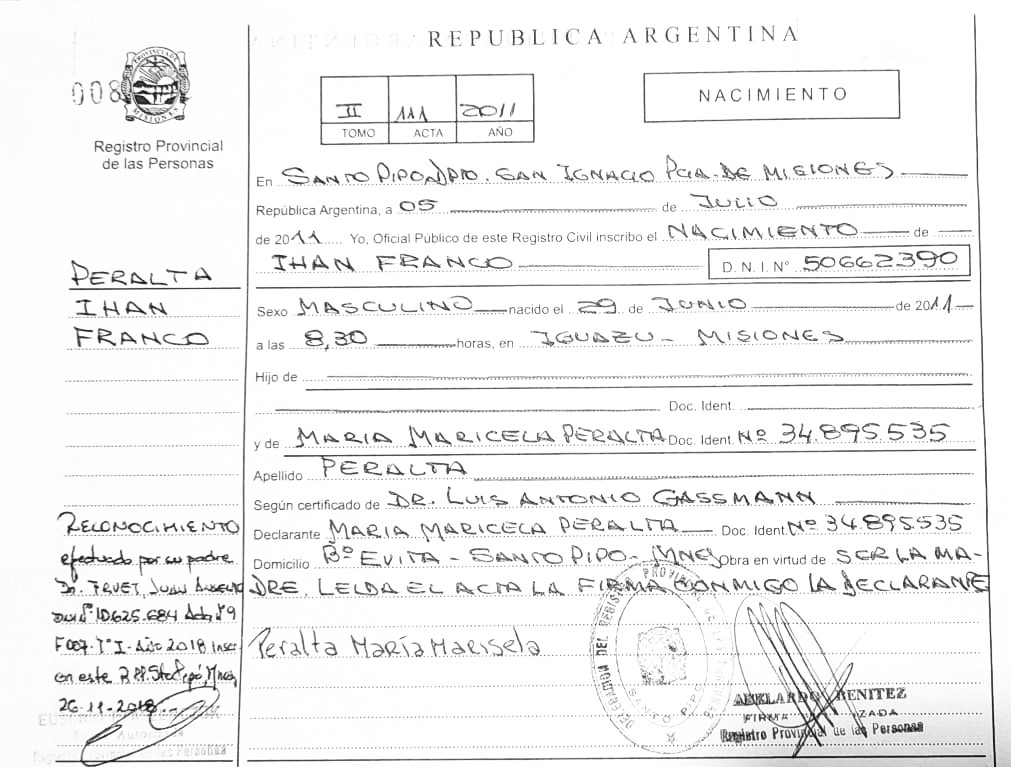 REPUBLICA ARGENTINA
008
PROVINCIA DE MISIONES
Registro Provincial
de las Personas
II 111 2011
TOMO ACTA AÑO
NACIMIENTO
En SANTO PIPO DPTO. SAN IGNACIO PCIA. DE MISIONES
República Argentina, a 05 de JULIO
de 2011 Yo, Oficial Público de este Registro Civil inscribo el NACIMIENTO de
IHAN FRANCO D. N. I. Nº 50662390
Sexo MASCULINO nacido el 29 de JUNIO de 2011
a las 8,30 horas, en IGUAZU - MISIONES
Hijo de
Doc. Ident.
y de MARIA MARICELA PERALTA Doc. Ident. Nº 34.895.535
Apellido PERALTA
Según certificado de DR. LUIS ANTONIO GASSMANN
Declarante MARIA MARICELA PERALTA Doc. Ident. Nº 34.895.535
Domicilio Bº EVITA - SANTO PIPO - MNES Obra en virtud de SER LA MA-
DRE. LEIDA EL ACTA LA FIRMA CONMIGO LA DECLARANTE
Peralta María Marisela
PERALTA
IHAN
FRANCO
RECONOCIMIENTO
efectuado por su padre
Juan
DNI Nº 10.625.684 Acta Nº 9
Fº 007. Tº I - Año 2018 Inscr
en este R.P.P. Sto Pipó, Mnes,
26-11-2018.
DELEGACION DEL REGISTRO PROVINCIAL DE LAS PERSONAS
SANTO PIPO
ABELARDO BENITEZ
FIRMA AUTORIZADA
Registro Provincial de las Personas
Registro Provincial de las Personas